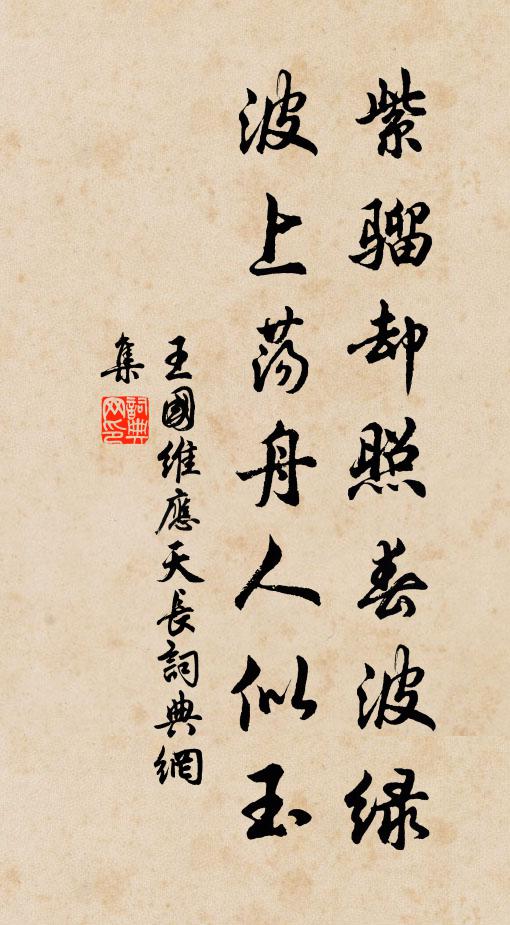 紫騮却照春波绿
波上蕩舟人似玉
王國維應天長詞典網
集
詞典網印